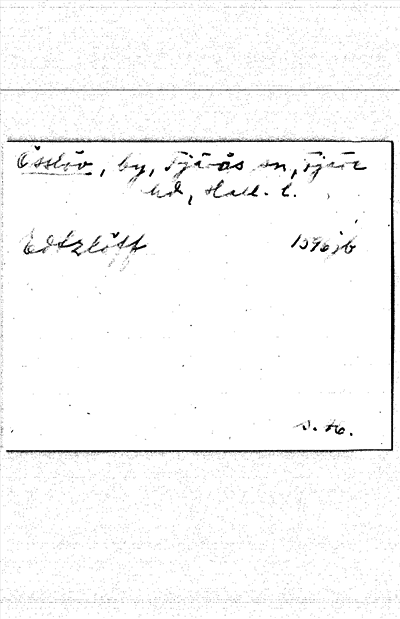 Össlöv, by, Fjärås sn, Fjäre
hd, Hall. l.
Edtzlöff 1596 jb